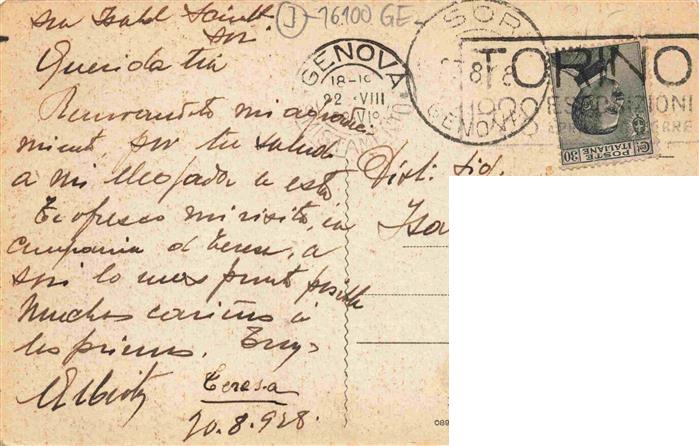 Sra Isabel
Sori
J -16100 GE-
Querida tia
mi agradeci-
miento por tu saludo
a mi llegada a esta
Te ofresco mi visita, en
compania d Teresa, a
Sori lo mas pronto posible
Muchos cariños a
los primos. Tuyo
Teresa
20.8.928.
GENOVA
18-19
22 VIII
VI
SORI
GENOVA
TORINO
ESPOSIZIONI
POSTE
ITALIANE
CENT 30
Dist: Sid.
Isa
089